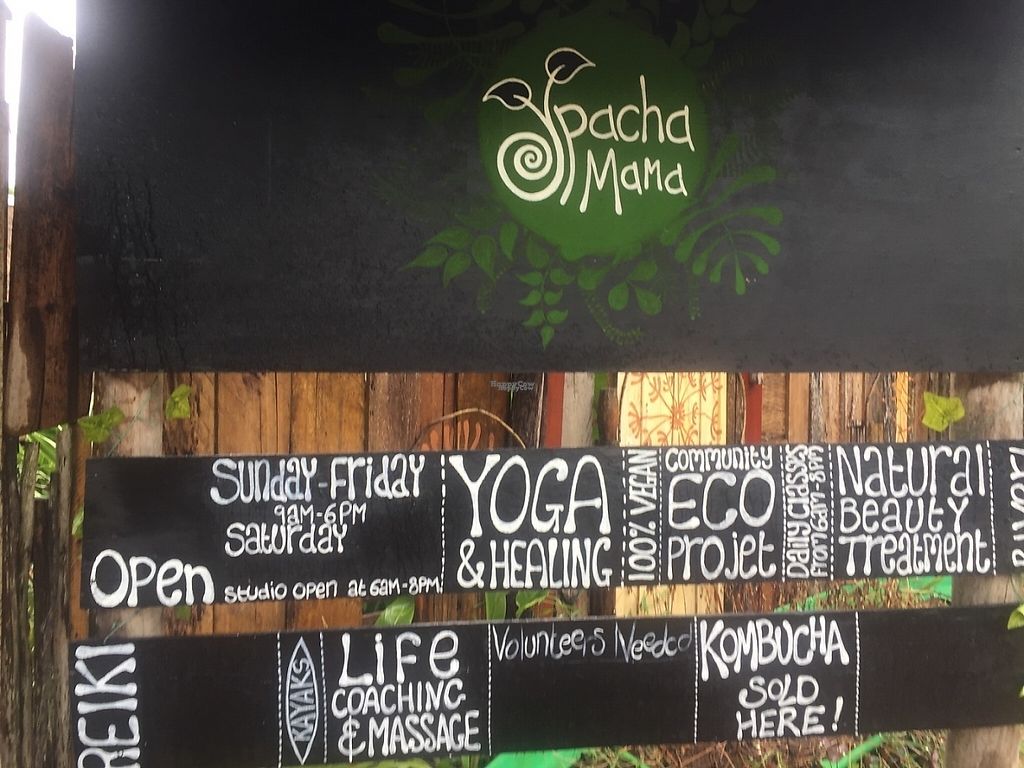 pacha
Mama
HappyCow
Sunday-Friday
9am-6pm
Saturday
Open
studio open at 6am-8pm
YOGA
& HEALING
100% VEGAN
Community
ECO
Projet
Daily classes
From 6am-8pm
Natural
Beauty
Treatment
REIKI
KAYAKS
LiFe
COACHING
& MASSAGE
Volunteers Needed
KOMBUCHA
SOLD
HERE!